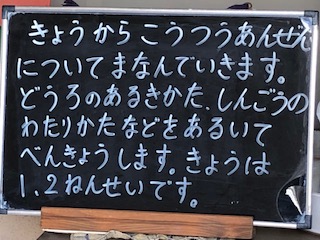 きょうからこうつうあんぜん
についてまなんでいきます。
どうろのあるきかた、しんごうの
わたりかたなどをあるいて
べんきょうします。きょうは
1、2ねんせいです。